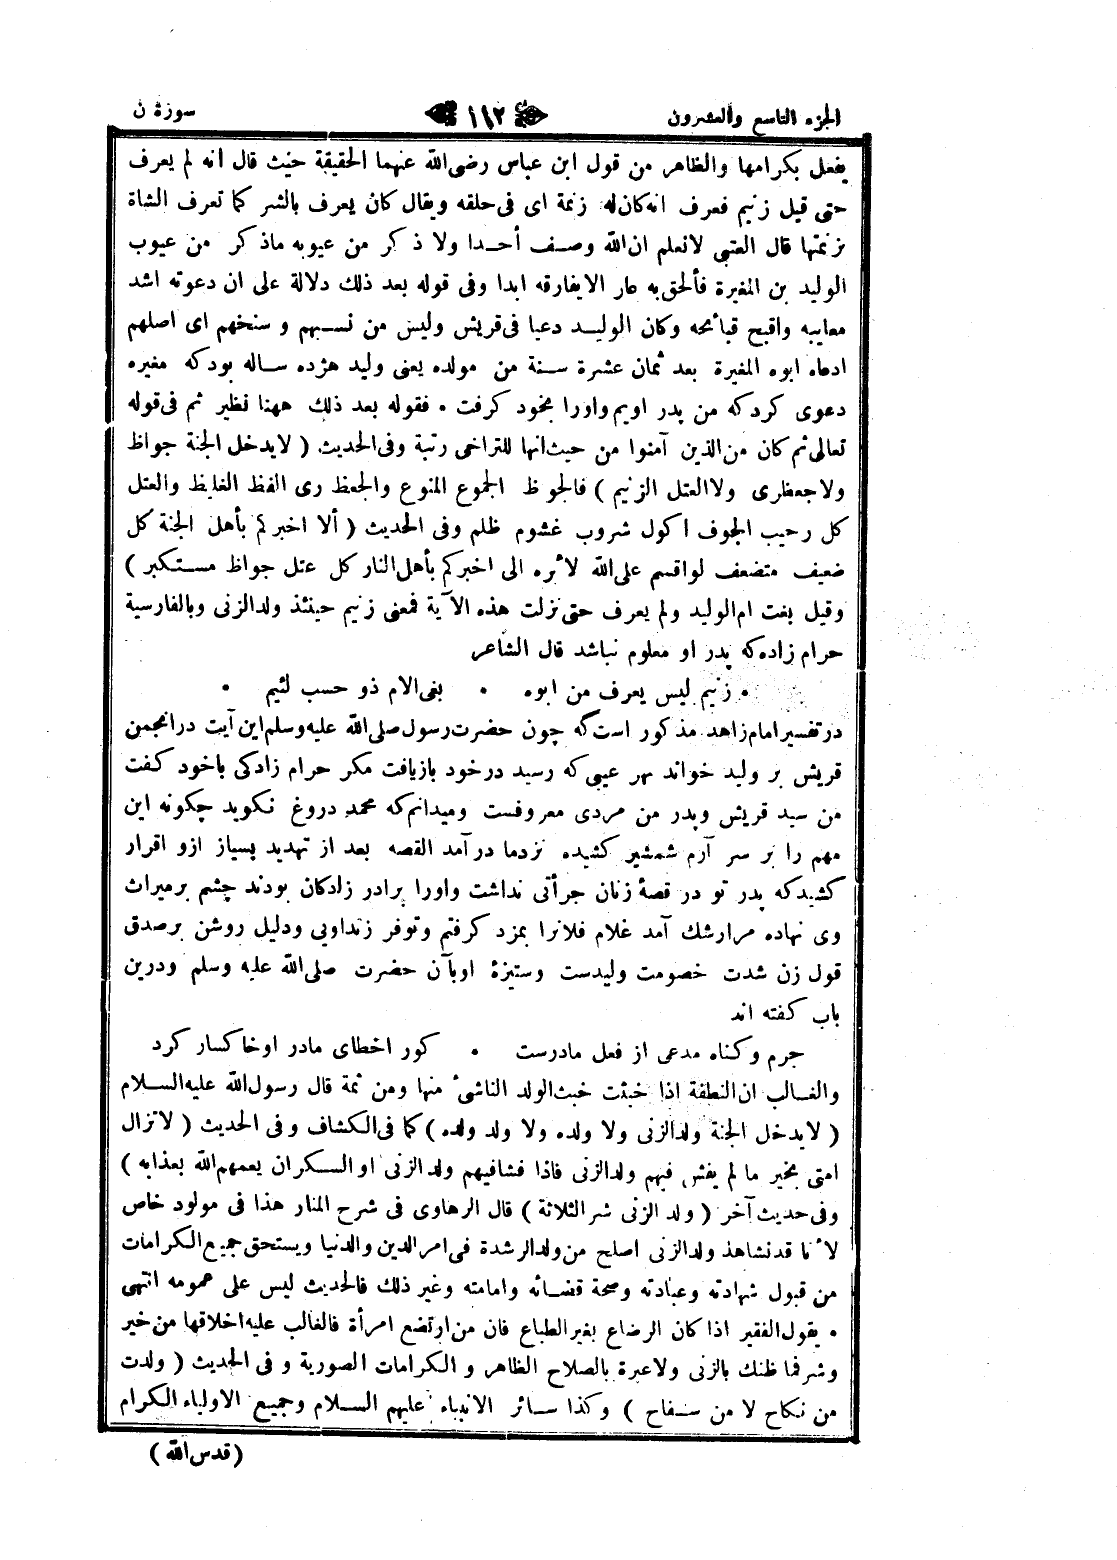 الجزء التاسع والعشرون ١١٢ سورة ن
يفعل بكرامها والظاهر من قول ابن عباس رضى الله عنهما الحقيقة حيث قال انه لم يعرف
حتى قيل زنيم فعرف انه كان له زنمة اى فى حلقه ويقال كان يعرف بالشر كما تعرف الشاة
بزنمتها قال العتبى لا نعلم ان الله وصف أحدا ولا ذكر من عيوبه ماذكر من عيوب
الوليد بن المغيرة فألحق به عار الايفارقه ابدا وفى قوله بعد ذلك دلالة على ان دعوته اشد
معايبه واقبح قبائحه وكان الوليد دعيا فى قريش وليس من نسبهم و سنخهم اى اصلهم
ادعاه ابوه المغيرة بعد ثمان عشرة سنة من مولده يعنى وليد هژده ساله بودكه مغيره
دعوى كردكه من پدر اويم واورا بخود كرفت • فقوله بعد ذلك ههنا نظير ثم فى قوله
تعالى ثم كان من الذين آمنوا من حيث انها للتراخى رتبة وفى الحديث ( لايدخل الجنة جواظ
ولا جعظرى ولا العتل الزنيم ) فالجوظ الجموع المنوع والجعظ رى الفظ الغليظ والعتل
كل رحيب الجوف اكول شروب غشوم ظلم وفى الحديث ( ألا اخبركم بأهل الجنة كل
ضعيف متضعف لواقسم على الله لأبره الى اخبركم بأهل النار كل عتل جواظ مستكبر )
وقيل بغت ام الوليد ولم يعرف حتى نزلت هذه الآية فمعنى زنيم حينئذ ولد الزنى وبالفارسية
حرام زاده كه پدر او معلوم نباشد قال الشاعر
• زنيم ليس يعرف من ابوه • بغى الام ذو حسب لئيم •
در تفسير امام زاهد مذكور است كه چون حضرت رسول صلى الله عليه وسلم اين آيت در انجمن
قريش بر وليد خواند بهر عيبى كه رسيد در خود بازيافت مكر حرام زادكى باخود كفت
من سيد قريش وپدر من مردى معروفست وميدانم كه محمد دروغ نكويد چكونه اين
مهم را بر سر آرم شمشير كشيده نزدما درآمد القصه بعد از تهديد بسياز ازو اقرار
كشيدكه پدر تو در قصهٔ زنان جرأتى نداشت واورا برادر زادكان بودند چشم برميراث
وى نهاده مرارشك آمد غلام فلانرا بمزد كرفتم وتوفر زنداويى ودليل روشن برصدق
قول زن شدت خصومت وليدست وستيزهٔ اوبآن حضرت صلى الله عليه وسلم ودرين
باب كفته اند
جرم وكناه مدعى از فعل مادرست • كور اخطاى مادر اوخاكسار كرد
والغالب ان النطفة اذا خبثت خبث الولد الناشئ منها ومن ثمة قال رسول الله عليه السلام
( لايدخل الجنة ولد الزنى ولا ولده ولا ولد ولده ) كما فى الكشاف و فى الحديث ( لا تزال
امتى بخير ما لم يفش فيهم ولد الزنى فاذا فشافيهم ولد الزنى او السكران يعمهم الله بعذابه )
وفى حديث آخر ( ولد الزنى شر الثلاثة ) قال الرهاوى فى شرح المنار هذا فى مولود خاص
لأنا قد نشاهد ولد الزنى اصلح من ولد الرشدة فى امر الدين والدنيا ويستحق جميع الكرامات
من قبول شهادته وعبادته وصحة قضائه وامامته وغير ذلك فالحديث ليس على عمومه انتهى
• يقول الفقير اذا كان الرضاع بغير الطباع فان من ارتضع امرأة فالغالب عليه اخلاقها من خير
وشر فما ظنك بالزنى ولا عبرة بالصلاح الظاهر و الكرامات الصورية و فى الحديث ( ولدت
من نكاح لا من سفاح ) وكذا سائر الانبياء عليهم السلام وجميع الاولياء الكرام
( قدس الله )